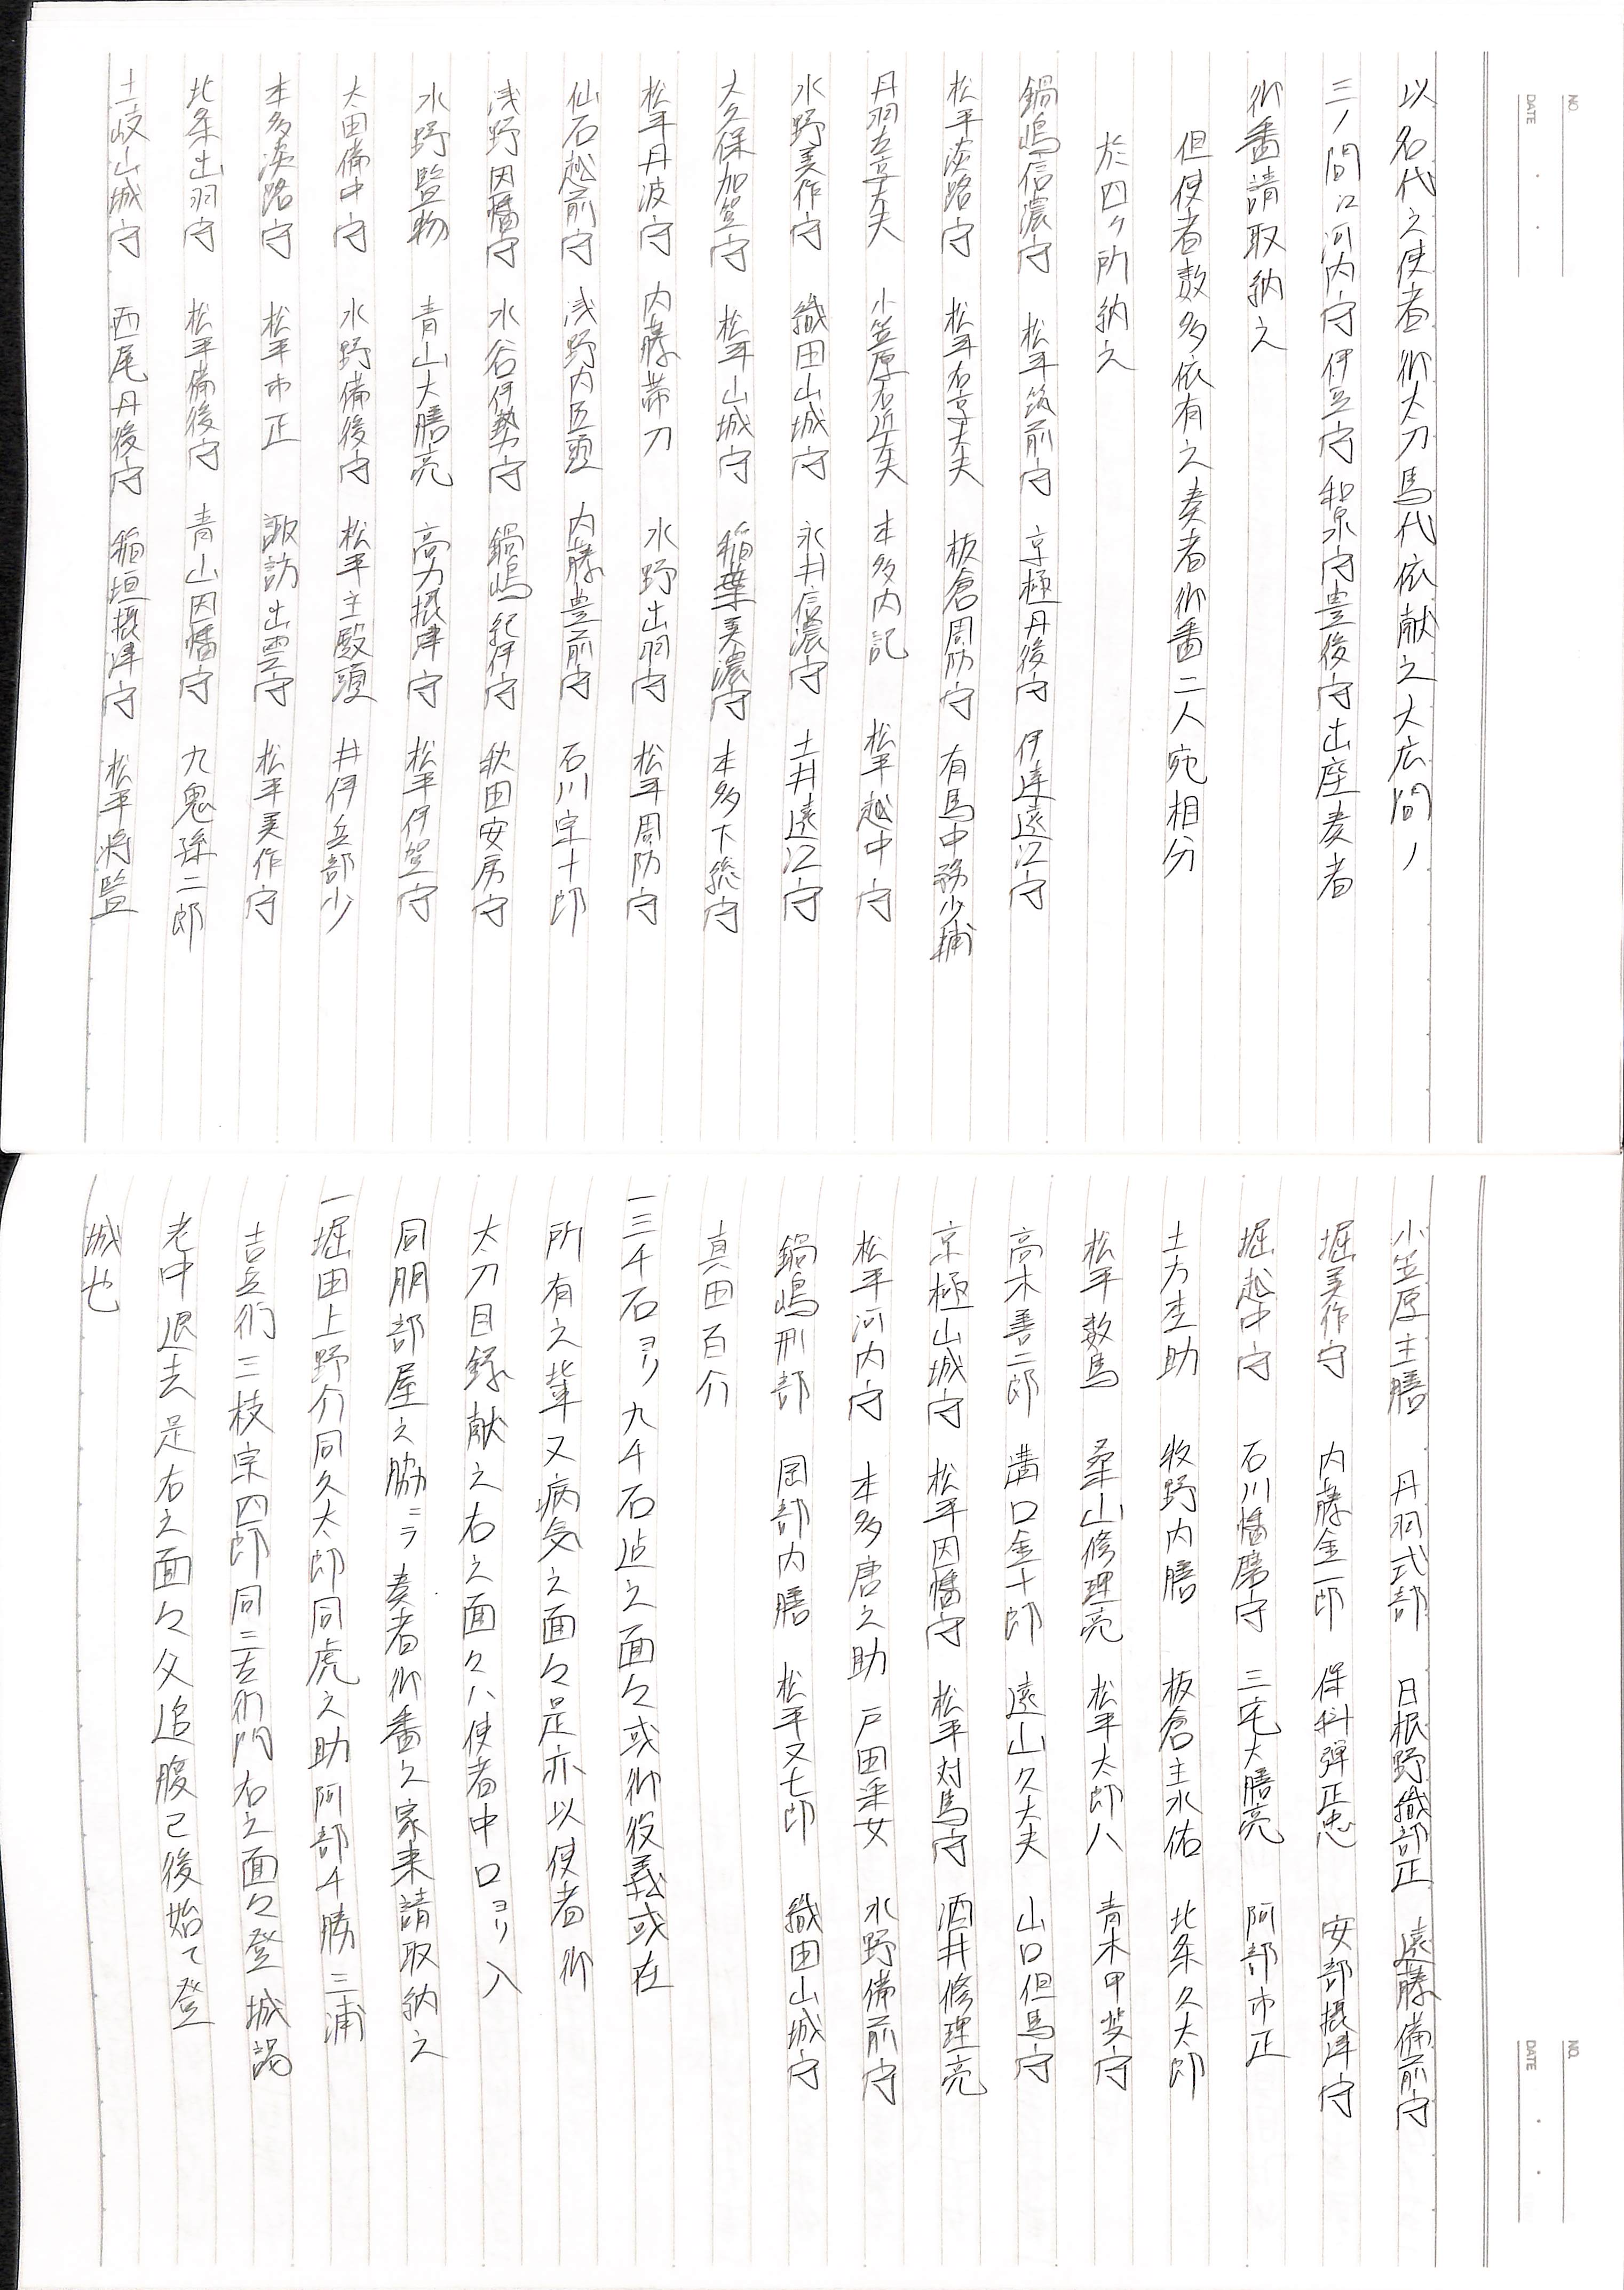 NO.
DATE
以名代之使者御太刀馬代依献之大広間ノ
三ノ間江河内守伊豆守和泉守豊後守出座奏者
御番請取納之
但使者数多依有之奏者御番二人宛相分
於四ヶ所納之
鍋嶋信濃守 松平筑前守 京極丹後守 伊達遠江守
松平淡路守 松平右京大夫 板倉周防守 有馬中務少輔
丹羽左京大夫 小笠原右近大夫 本多内記 松平越中守
水野美作守 織田山城守 永井信濃守 土井遠江守
大久保加賀守 松平山城守 稲葉美濃守 本多下総守
松平丹波守 内藤帯刀 水野出羽守 松平周防守
仙石越前守 浅野内匠頭 内藤豊前守 石川宗十郎
浅野因幡守 水谷伊勢守 鍋嶋紀伊守 秋田安房守
水野監物 青山大膳亮 高力摂津守 松平伊賀守
太田備中守 水野備後守 松平主殿頭 井伊兵部少
本多淡路守 松平市正 諏訪出雲守 松平美作守
北条出羽守 松平備後守 青山因幡守 九鬼孫二郎
土岐山城守 西尾丹後守 稲垣摂津守 松平将監
NO.
DATE
小笠原主膳 丹羽式部 日根野織部正 遠藤備前守
堀美作守 内藤金一郎 保科弾正忠 安部摂津守
堀越中守 石川播磨守 三宅大膳亮 阿部市正
土方杢助 牧野内膳 板倉主水佑 北条久太郎
松平数馬 桑山修理亮 松平太郎八 青木甲斐守
高木善二郎 溝口金十郎 遠山久大夫 山口但馬守
京極山城守 松平因幡守 松平対馬守 酒井修理亮
松平河内守 本多唐之助 戸田采女 水野備前守
鍋嶋刑部 岡部内膳 松平又七郎 織田山城守
真田百介
一三千石ヨリ九千石迠之面々或御役義或在
所有之輩又病気之面々是亦以使者御
太刀目録献之右之面々ハ使者中口ヨリ入
同朋部屋之脇ニテ奏者御番之家来請取納之
一堀田上野介同久太郎同虎之助阿部千勝三浦
吉兵衛三枝宗四郎同三左衛門右之面々登城謁
老中退去是右之面々父追腹已後始て登
城也